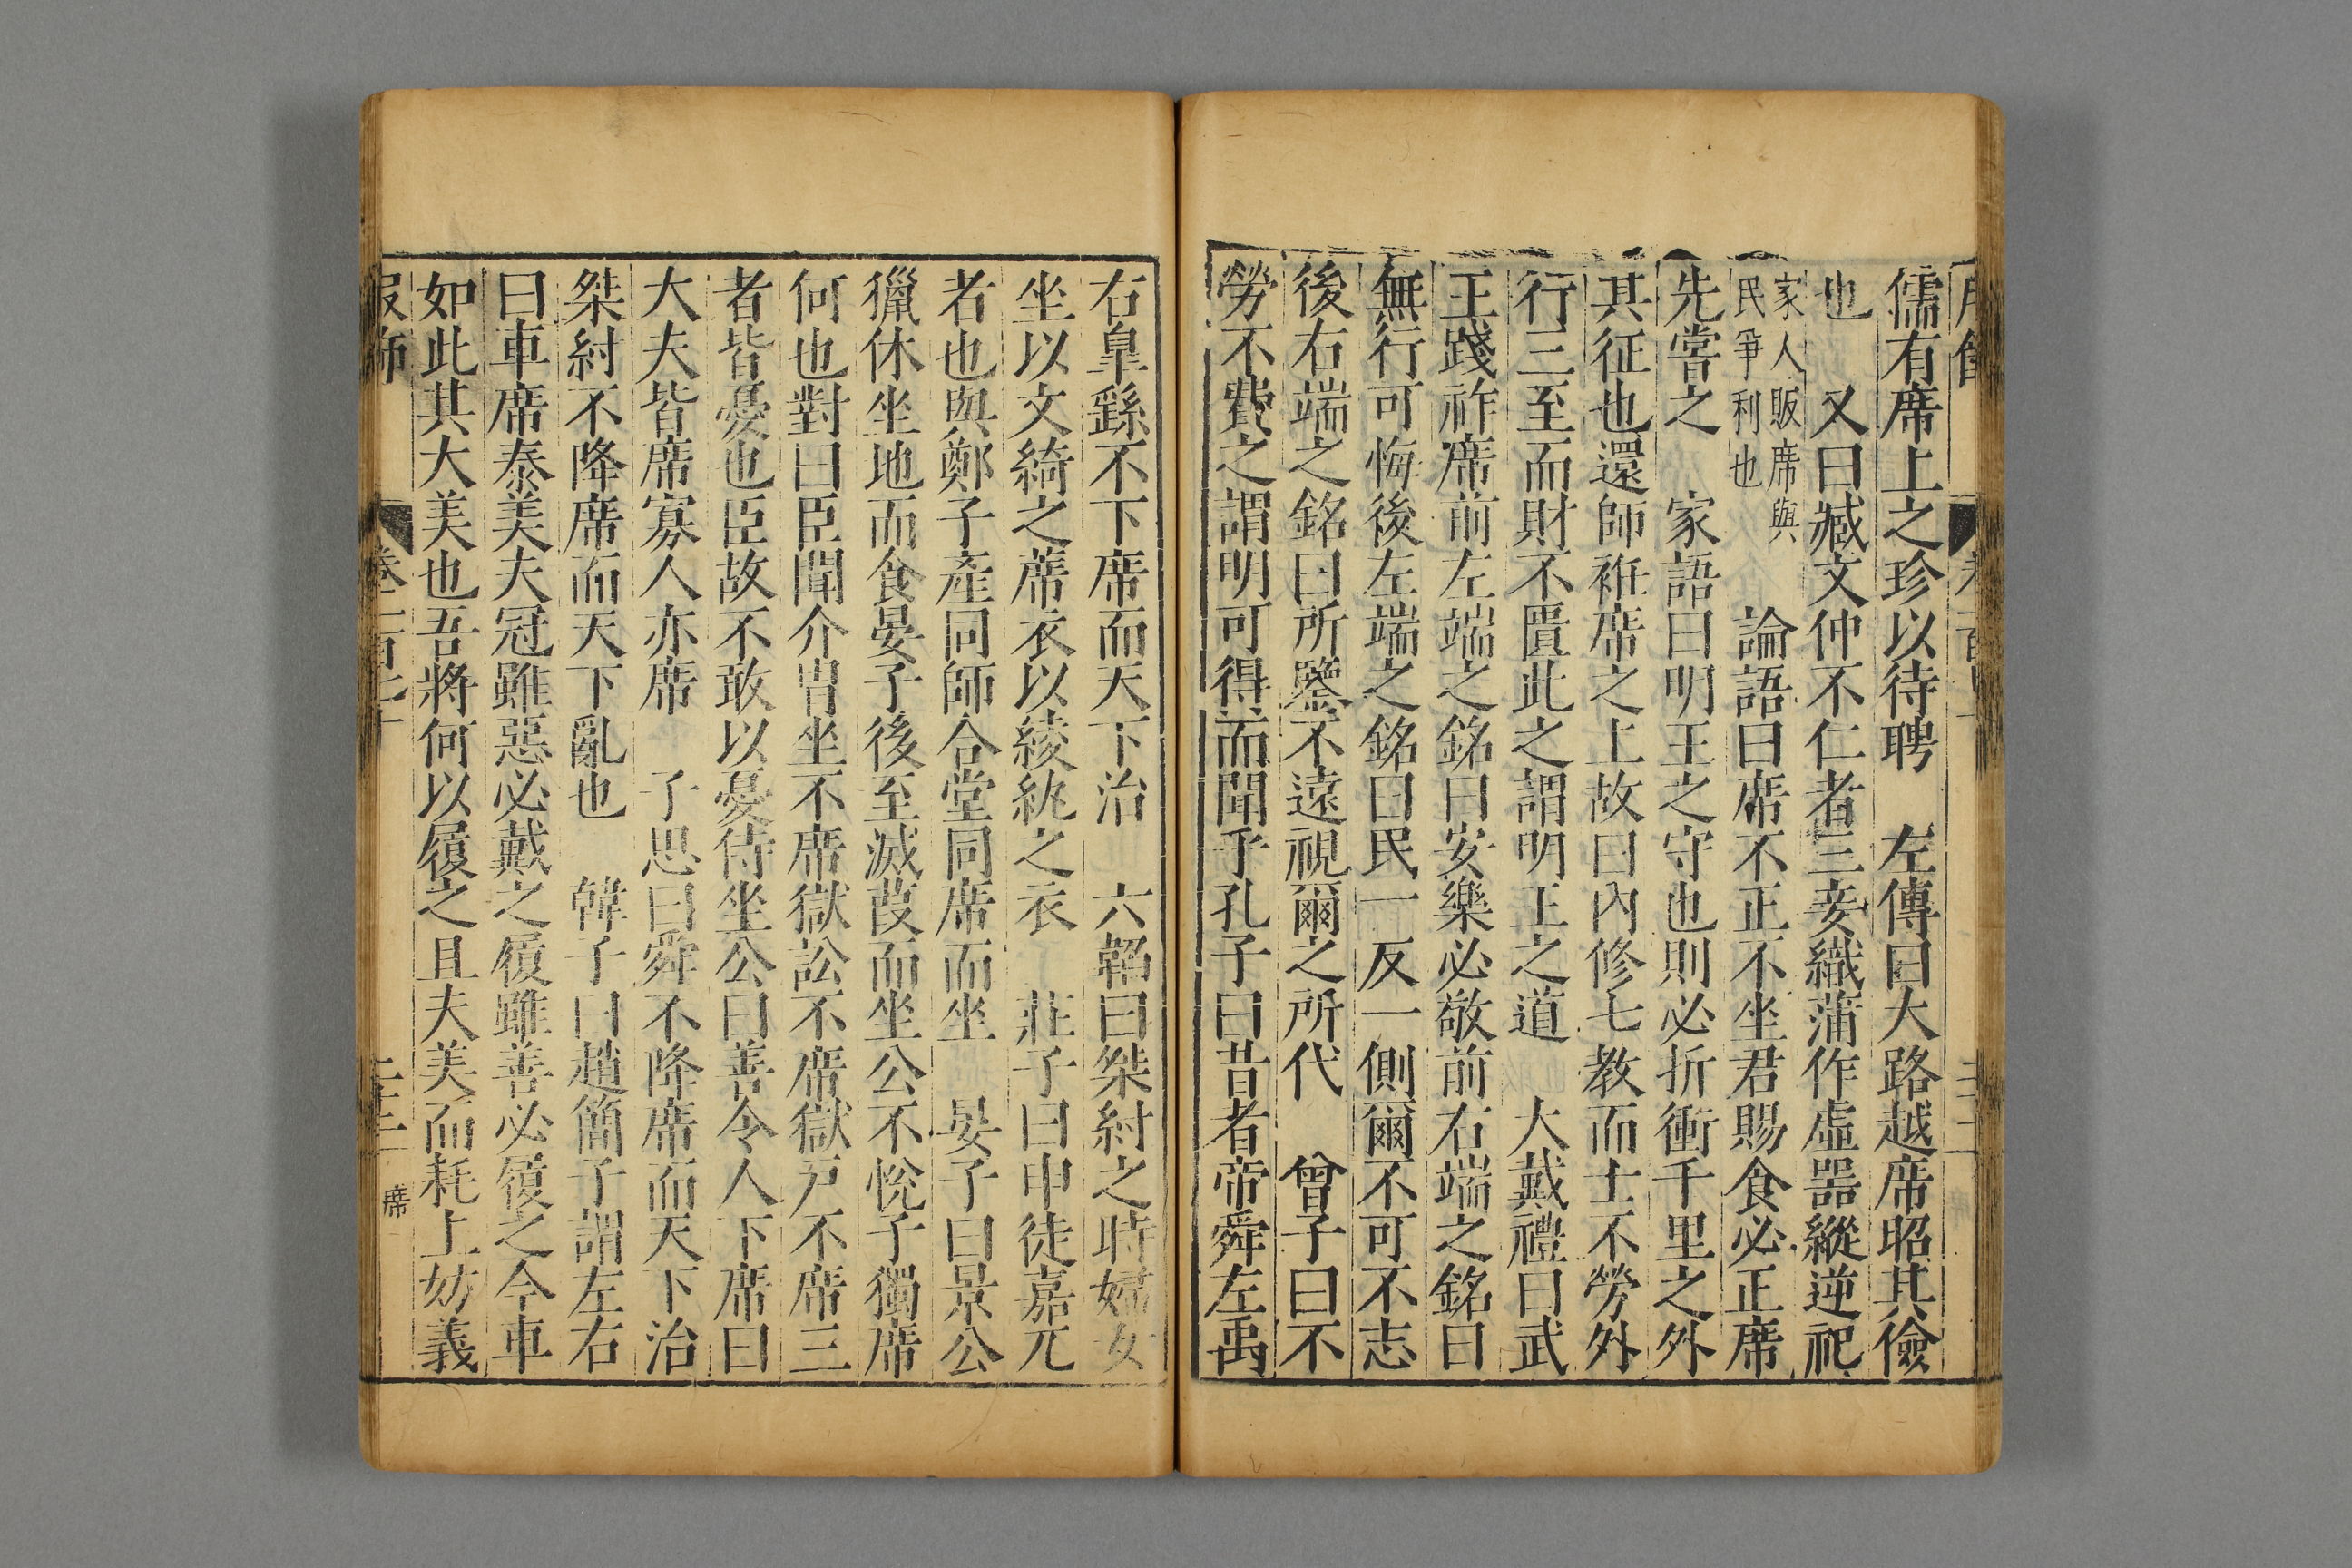 儒有席上之珍以待聘　左傳曰大路越席昭其儉
也　又曰臧文仲不仁者三妾織蒲作虛噐縱逆祀
家人販席與
民爭利也
論語曰席不正不坐君賜食必正席
先嘗之　家語曰明王之守也則必折衝千里之外
其征也還師袵席之上故曰內修七教而士不勞外
行三至而財不匱此之謂明王之道　大戴禮曰武
王踐祚席前左端之銘曰安樂必敬前右端之銘曰
無行可悔後左端之銘曰民一反一側爾不可不志
後右端之銘曰所鑒不遠視爾之所代　曾子曰不
勞不費之謂明可得而聞乎孔子曰昔者帝舜左禹
右皐繇不下席而天下治　六韜曰桀紂之時婦女
坐以文綺之蓆衣以綾紈之衣　莊子曰申徒嘉兀
者也與鄭子產同師合堂同席而坐　晏子曰景公
獵休坐地而食晏子後至滅葭而坐公不悅子獨席
何也對曰臣聞介胄坐不席獄訟不席獄戸不席三
者皆憂也臣故不敢以憂待坐公曰善令人下席曰
大夫皆席寡人亦席　子思曰舜不降席而天下治
桀紂不降席而天下亂也　韓子曰趙簡子謂左右
曰車席泰美夫冠雖惡必戴之履雖善必履之今車
如此其大美也吾將何以履之且夫美而耗上妨義
服飾
席